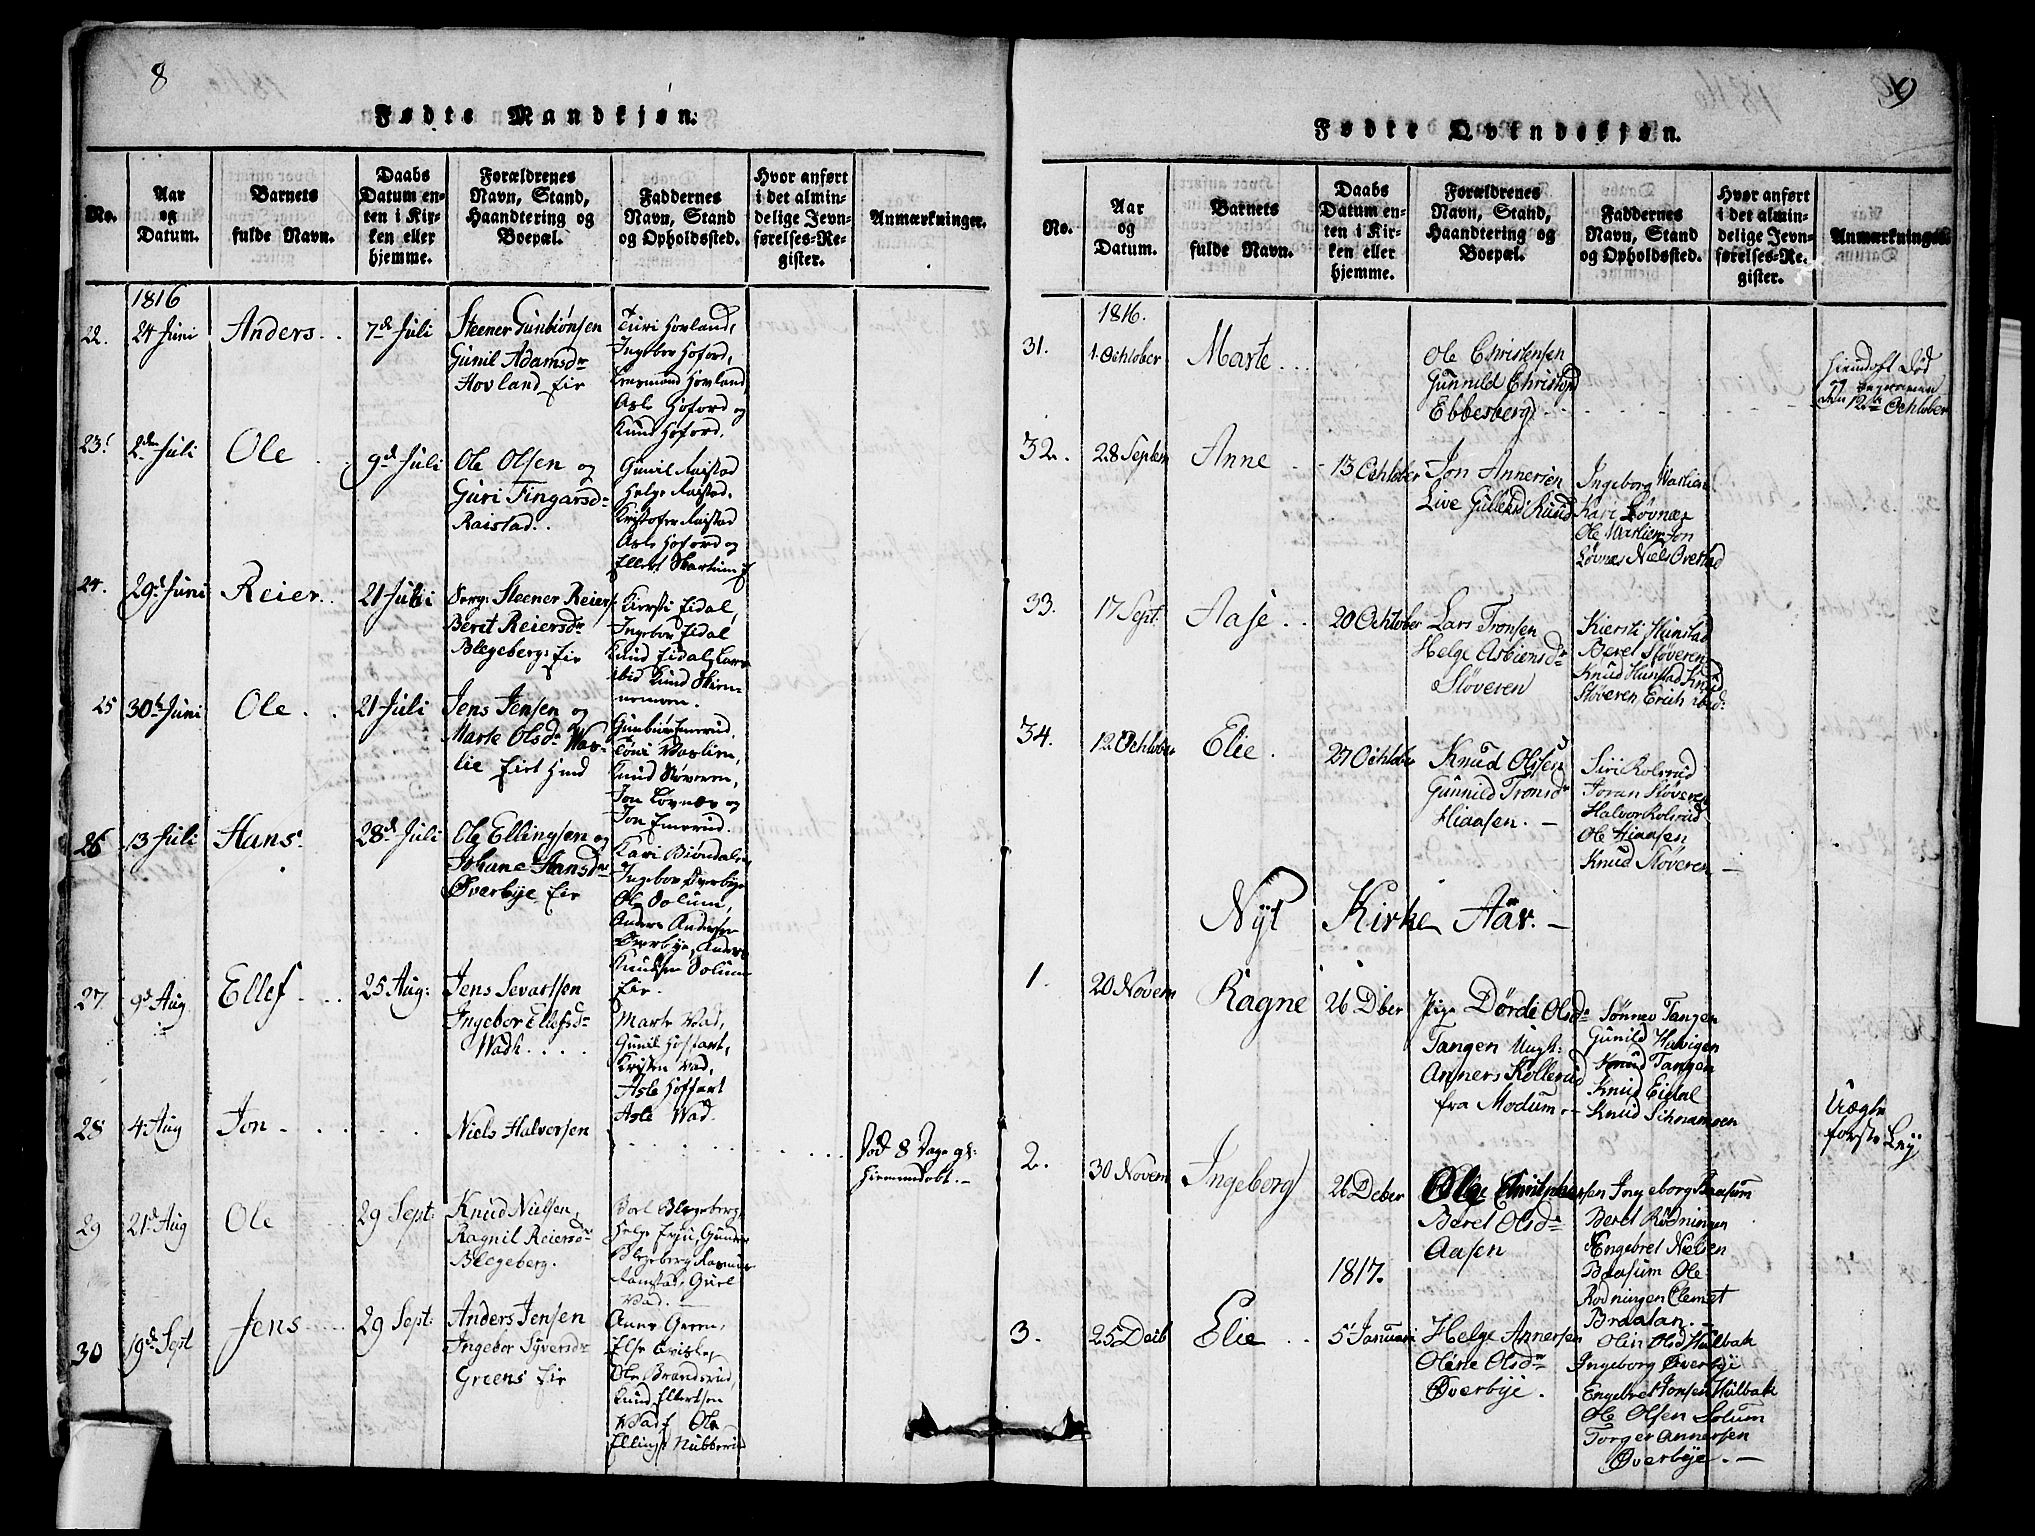 8
Fødte Mandkjøn.
No.
Aar
og
Datum.
Barnets
fulde Navn.
Daabs
Datum en-
ten i Kir-
ken eller
hjemme.
Forældrenes
Navn, Stand,
Haandtering og
Boepæl.
Faddernes
Navn, Stand
og Opholdssted.
Hvor anført
i det almin-
delige Jevn-
førelses-Re-
gister.
Anmærkninger.
1816
22.
24 Juni
Anders
7de Juli
Steener Gunbiønsen
Gunil Adamsdr
Hovland Eier
Turi Hovland,
Ingebor Hoford,
Hovland
Asle Hoford og
Knud Hoford.
23
2den Juli
Ole
9de Juli
Ole Olsen og
Guri Fingarsdr
Raistad.
Gunil Raistad
Helge Raistad,
Kristofer Raistad
Asle Hoford og
Ellert
24.
29de Juni
Reier
21 Juli
Serg: Steener Reiers
Berit Reiersdr
Blegeberg: Eier
Kiersti Eidal,
Ingebor Eidal
Knud Eidal, Lars
ibid Knud
25
30te Juni
Ole
21 Juli
Jens Jensen og
Marte Olsdr Was-
lie
Gunbiør Emerud.
Toni Waslien,
Knud Støveren,
Jon Løvnæs og
Jon Emerud.
26
13 Juli
Hans
28de Juli
Ole Ellingsen og
Johane Hansdr
Øverbye Eier
Kari Biøndal,
Ingebor Øverbye
Ole Solum,
Anders Andersen
Øverbye, Anders
Knudsen Solum
Eier.
27
9de Aug
Ellef
25 Aug:
Jens Sevartsen
Ingebor Ellefsdr
Wadh
Marte Wad,
Gunil Hoffart,
Kristen Wad,
Asle Hoffart
Asle Wad.
28
4 Aug
Jon
Niels Halversen
Død 8 Dage gl:
Hiemmedøbt.
29
21de Aug
Ole
29 Sept:
Knud Nielsen,
Ragnil Reiersdr
Blegeberg.
Blegeberg,
Helge Erju, Gunner
Blegeberg Rasmus
Ramstad, Gurl
Wad.
30
19de Sept
Jens
29 Sept:
Anders Jensen
Ingebor Syversdr
Greens Eier
Anne Green,
Else Qvisle,
Ole Brandsrud,
Knud Ellertsen
Wad Ole
Ellings Nubberud
9
Fødte Qvindekjøn.
No.
Aar
og
Datum.
Barnets
fulde Navn.
Daabs
Datum en-
ten i Kir-
ken eller
hjemme.
Forældrenes
Navn, Stand,
Haandtering og
Boepæl.
Faddernes
Navn, Stand
og Opholdssted.
Hvor anført
i det almin-
delige Jevn-
førelses-Re-
gister.
Anmærkninger.
1816.
31.
1. Ochtober
Marte
Ole Christensen
Gunnild Christopd
Ebbesberg
Hiemdøft Død
den 12te Ochtober
32.
28 Septem
Anne
13 Ochtober
Jon Annersen
Live Gulleksd Ruud
Ingeborg Warlien
Kari Løvnæs
Ole Warlien Jon
Løvnæs Niels Overstad
33.
17 Sept.
Aase
20 Ochtober
Lars Tronsen
Helge Asbiensdr
Støveren
Kiersti Hunstad
Beret Støveren
Knud Hunstad Knud
Støveren, Erich ibid:
34.
12. Ochtober
Elie
27 Ochtober
Knud Olssen
Gunnild Tronsdr
Hiaasen.
Siri Rolsrud
Joran Støveren
Halvor Rolsrud
Ole Hiaasen,
Knud Støveren
Nyt Kirke Aar.
1.
20 Novem
Ragne
26 Dber
Pige Dørdi Olsdr
Tangen Ungk:
Anners Kollerud
fra Modum.
Sønnev Tangen
Gunild Havigen
Knud Tangen
Knud Eidal
Knud
Uægte
første Leij
2.
30 Novem
Ingeborg
26 Deber
Ole Christophersen
Beret Olsdr
Aasen
Ingeborg Braasum
Beret Rødningen
Engebret Nielsen
Braasum Ole
Rodningen Clemet
Braatan.
1817.
3.
25 Decb
Elie
5 Januari
Helge Annersen
Oline Olsdr
Øverbye.
Olin Olsd Hulbak
Ingeborg Øverbye
Engebret Jonsen Hulbak
Ole Olsen Solum
Torger Annersen
Øverbye.